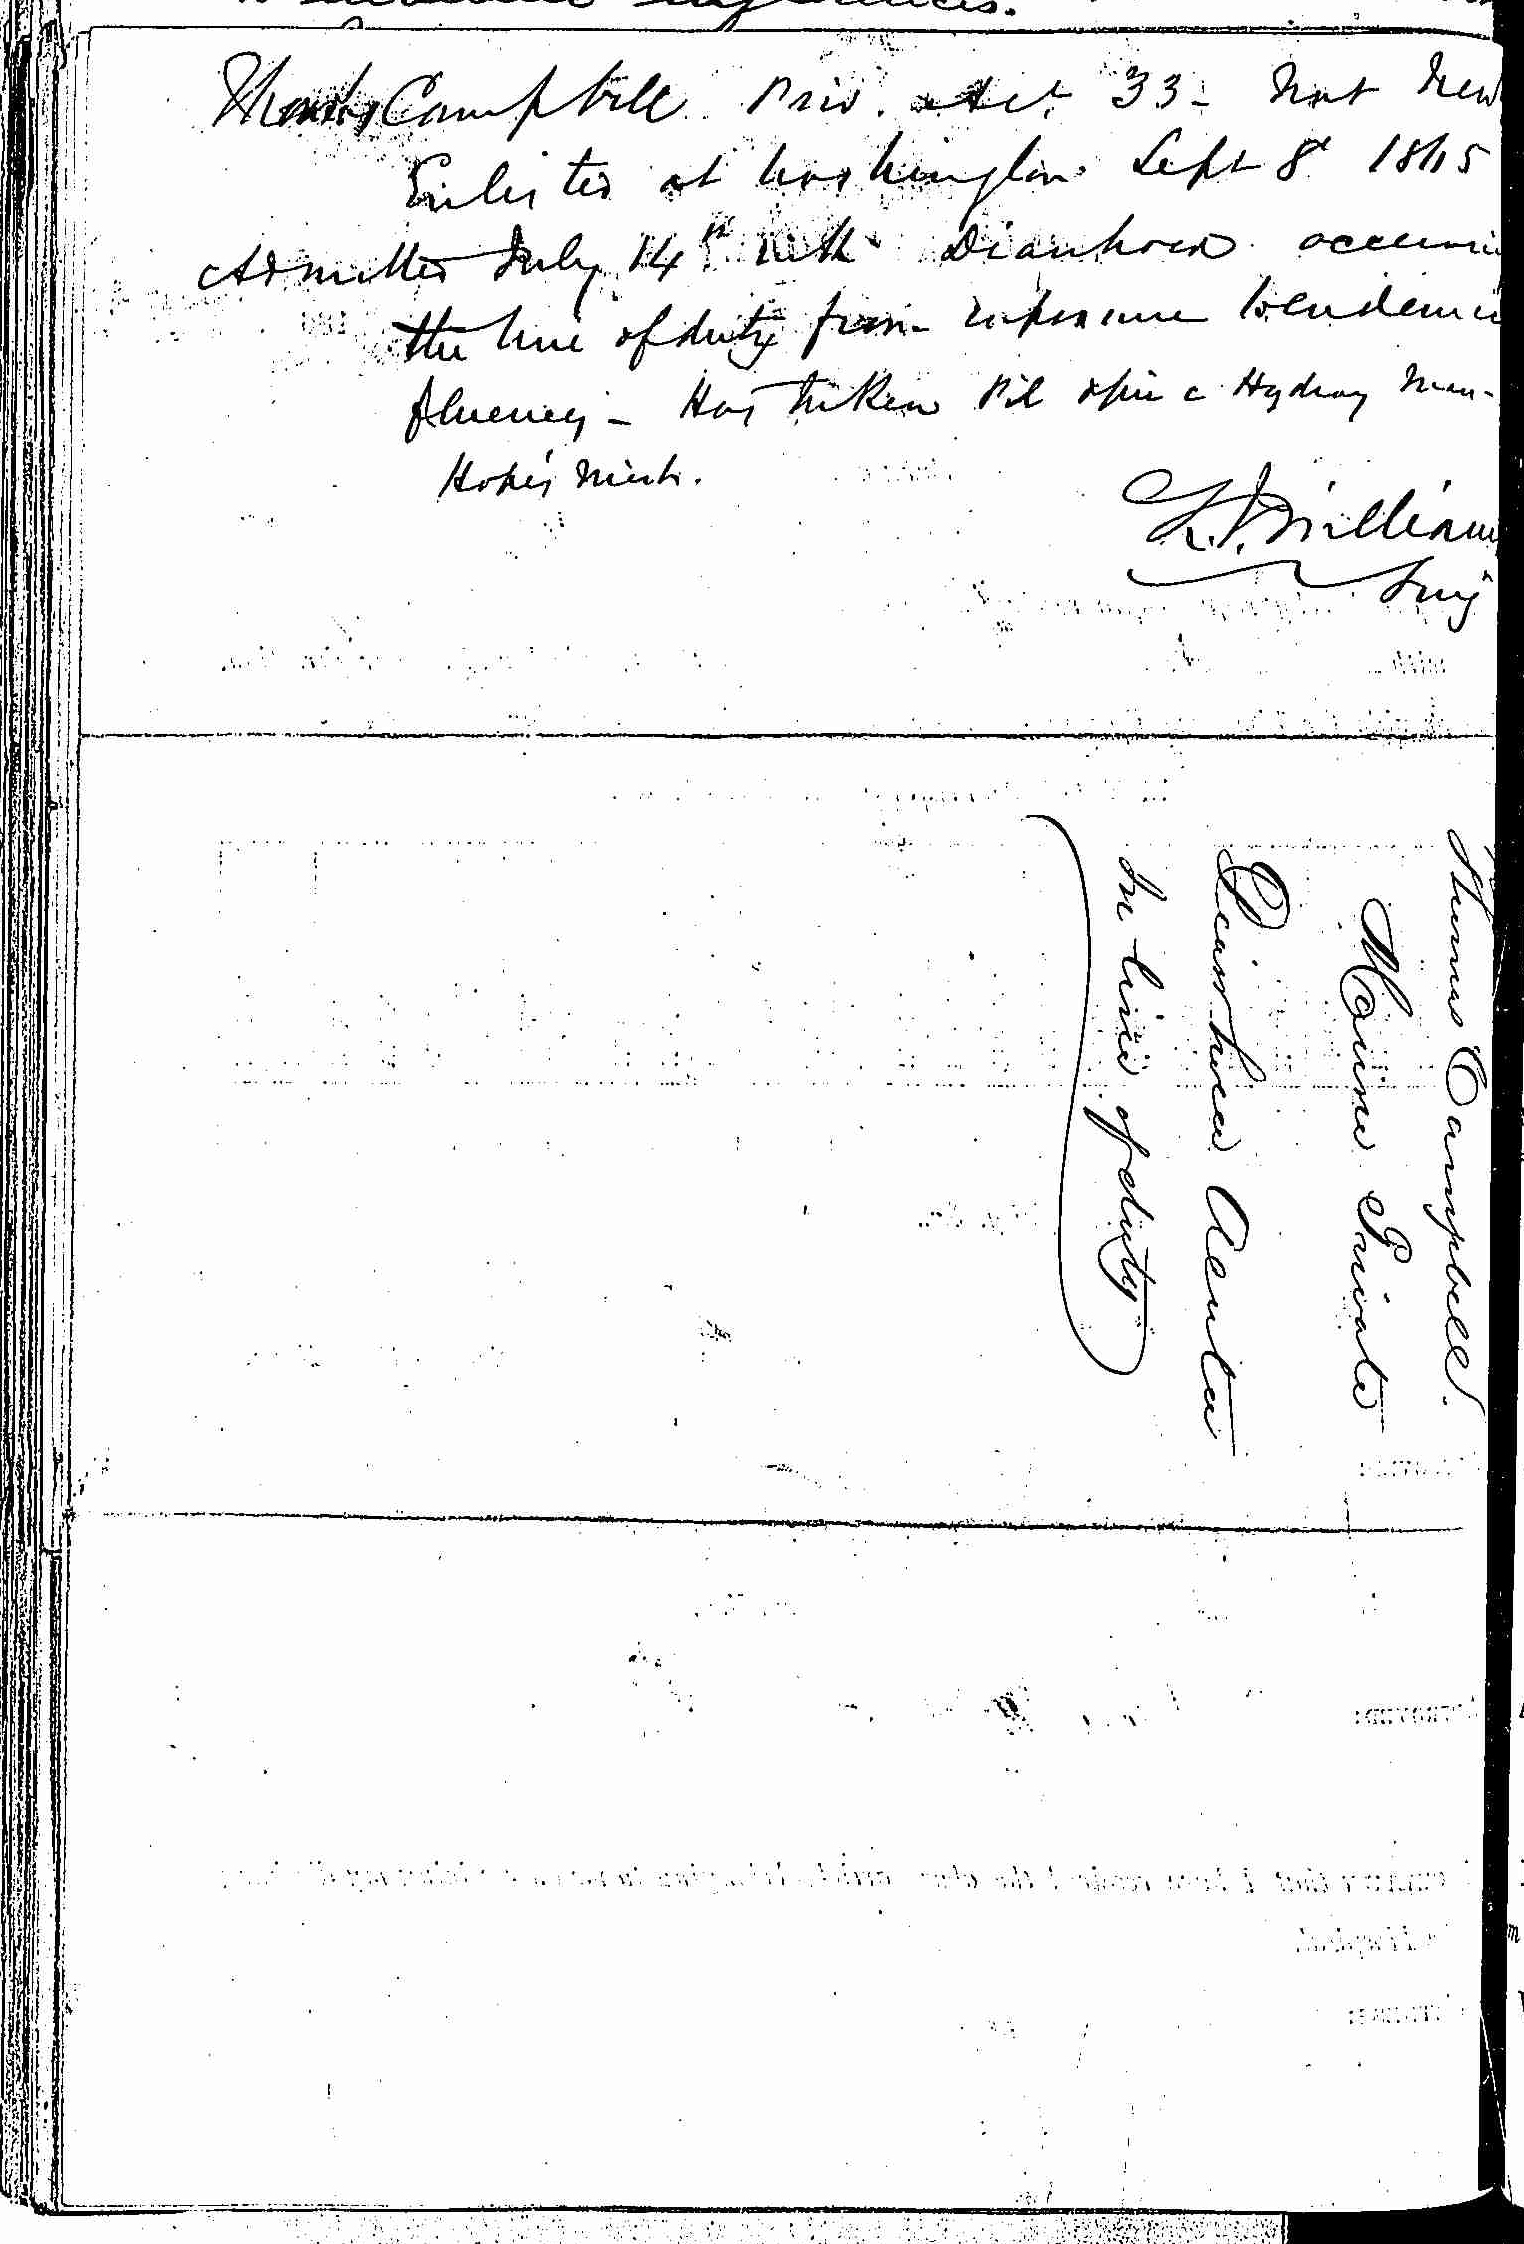 influences.
Thomas Campbell Priv. Aet. 33 - Nat New
Enlisted at Washington Sept 8th 1865
Admitted July 14th with Diarrhoea occurrin
the line of duty from exposure to endemic
fluences - Has taken Pil Opii c Hydrarg
Hope's Mist.
Williams
Surg
Thomas Campbell.
Marine Private
Diarrhoea Acuta
In line of duty